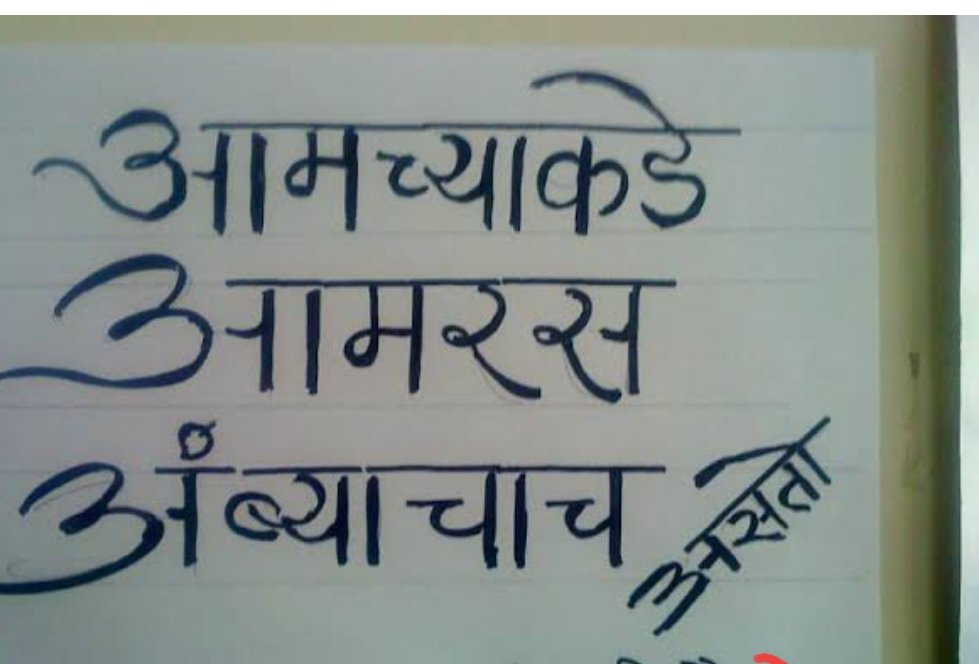 आमच्याकडे
आमरस
अंब्याचाच
असतो